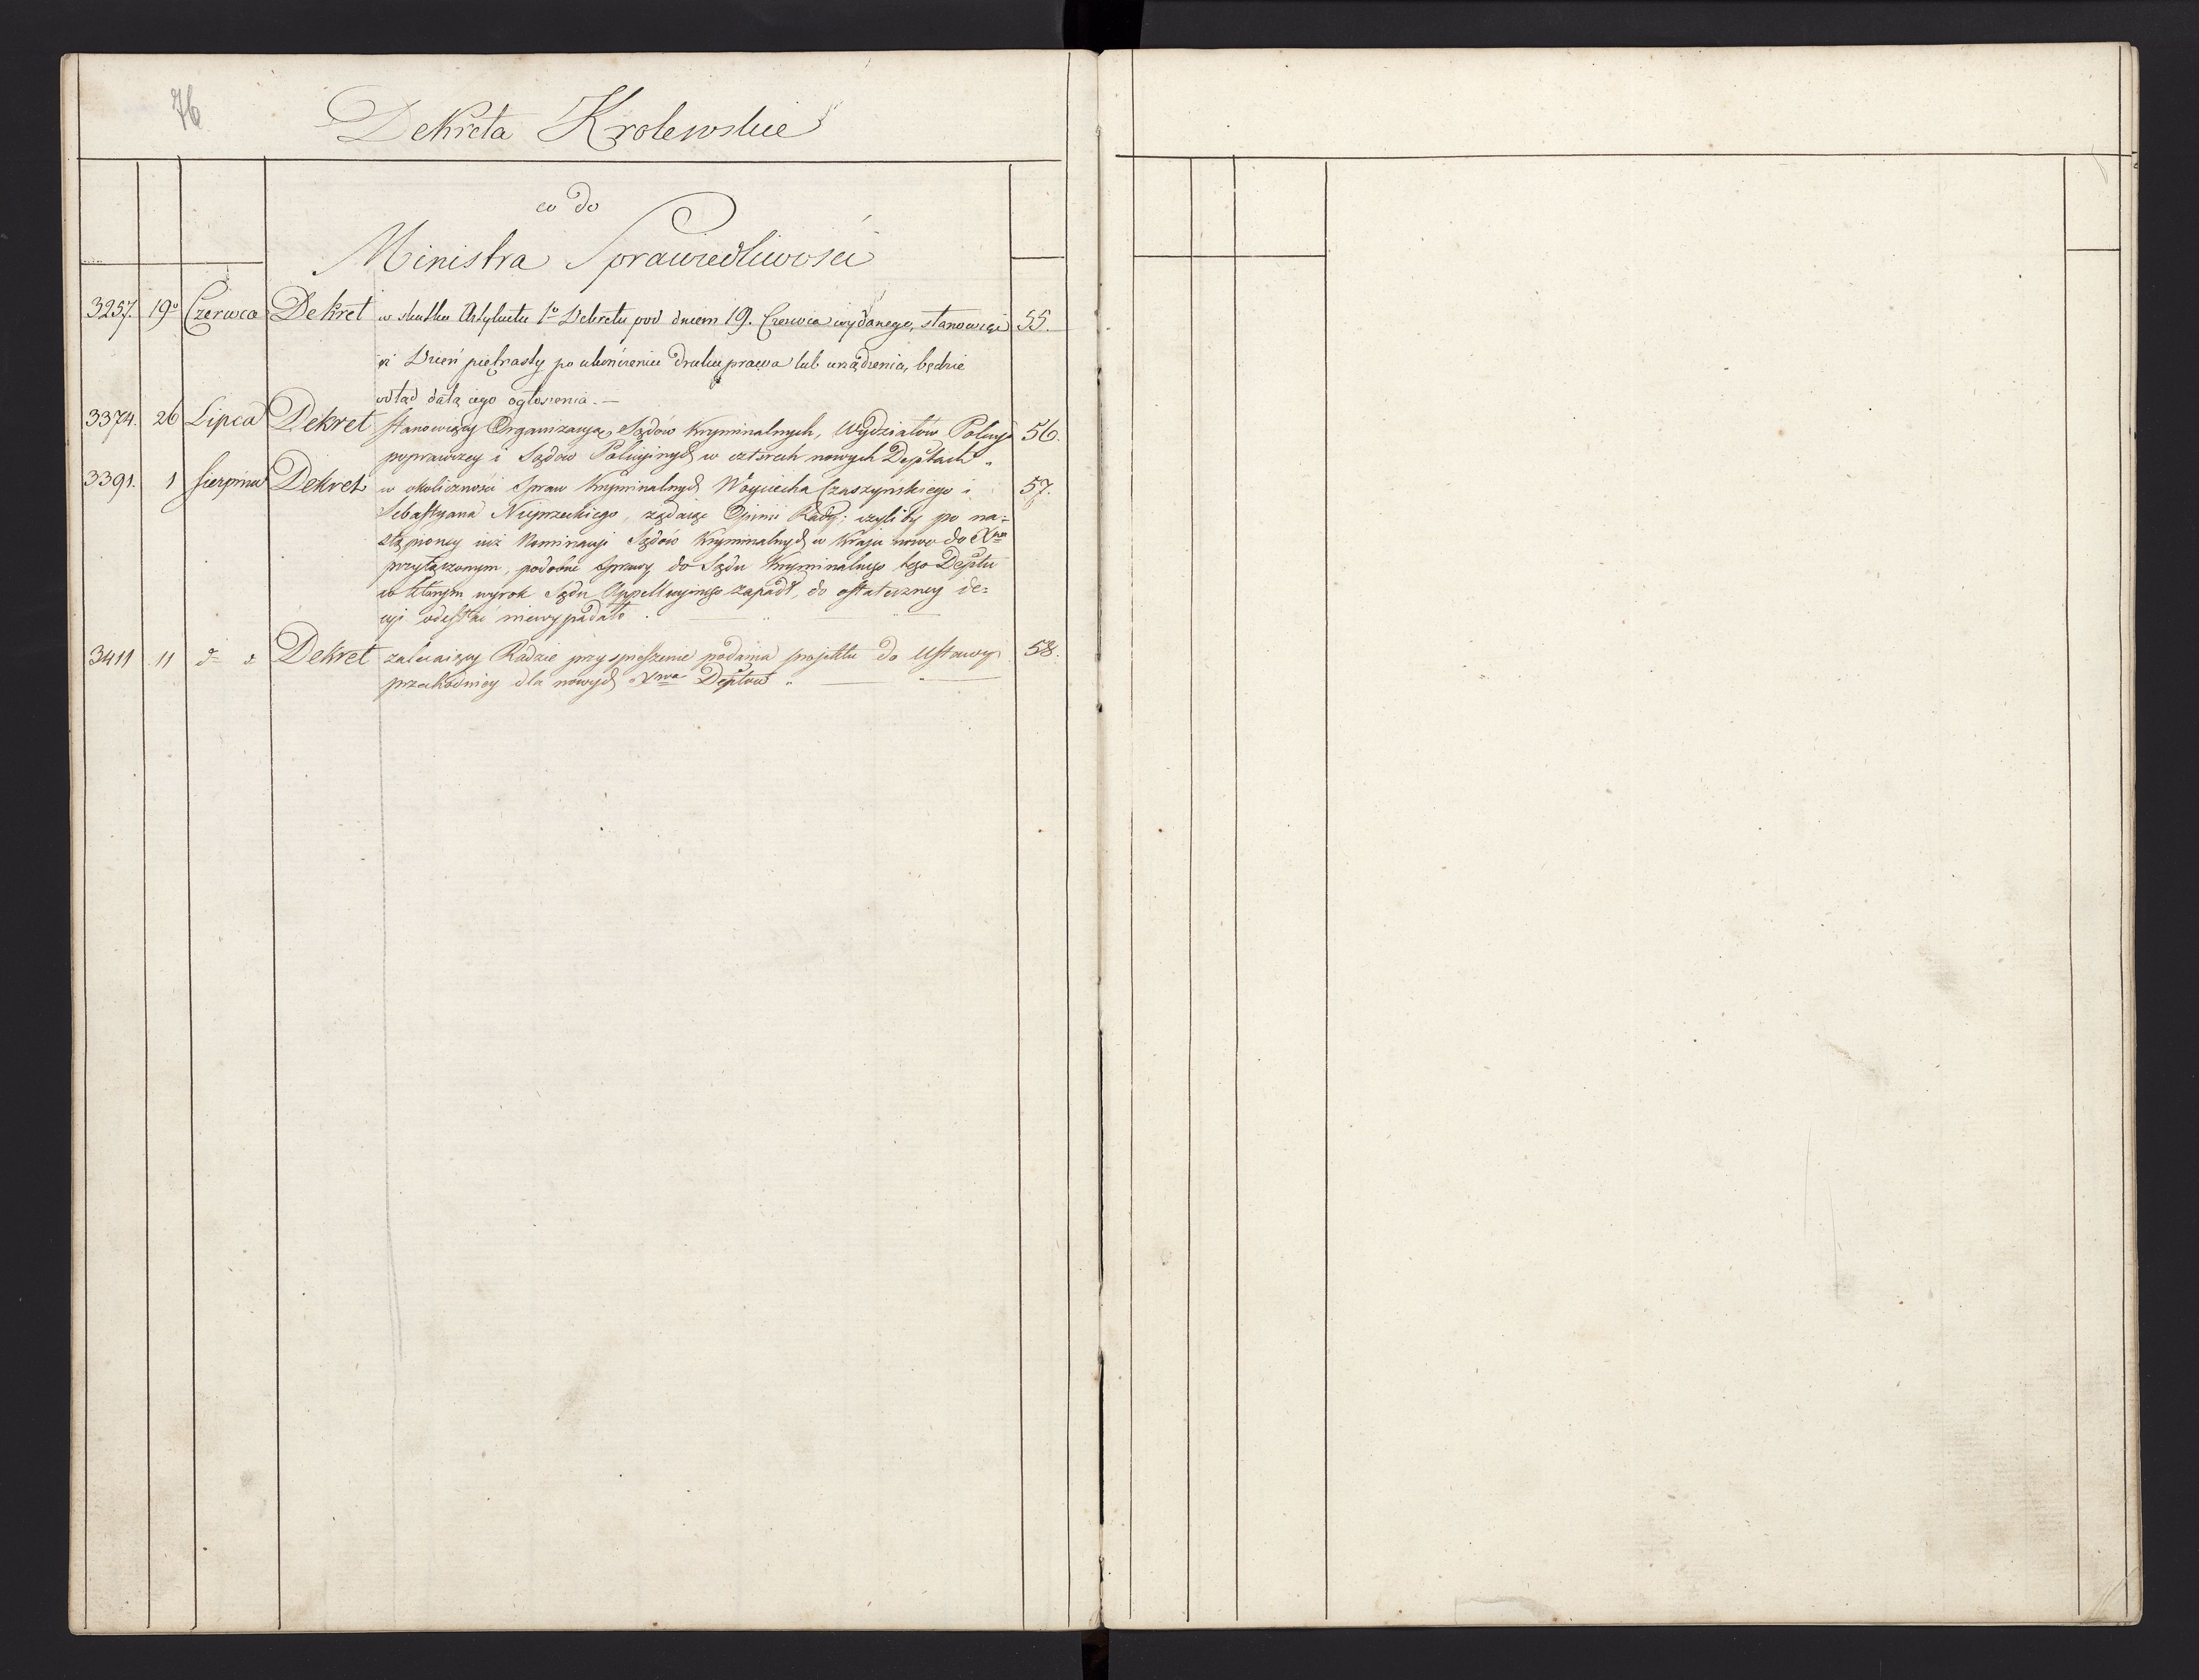 76
Dekreta Krolewskie
co do
Ministra Sprawiedliwości
3257. 19º Czerwca Dekret w skutku Artykułu 1º Dekretu pod dniem 19. Czerwca wydanego, stanowiący 55.
iż Dzień piętnasty po ukończeniu druku prawa lub urządzenia, będzie
odtąd datą iego ogłoszenia. —
3374. 26 Lipca Dekret stanowiący Organizacyą Sądów Kryminalnych, Wydziałów Policyi 56.
poprawczey i Sądów Policyinych w czterech nowych Deptach „
3391. 1 Sierpnia Dekret w okoliczności Spraw Kryminalnych Woyciecha Czaszyńskiego i 57.
Sebastyana Nieprzeckiego, żądaiąc Opinii Rady; czyliby po na=
stąpioney iuż Nominacyi Sądów Kryminalnych w Kraju nowo do Xwa
przyłączonym, podobne sprawy do Sądu Kryminalnego tego Deptu
w którym wyrok Sądu Appellacyinego zapadł, do ostateczney de=
cyi odesłać niewypadało .
3411 11 d= d= Dekret zalecaiący Radzie przyspieszenie podania projektu do Ustawy 58.
przechodniey dla nowych Xwa Deptów „